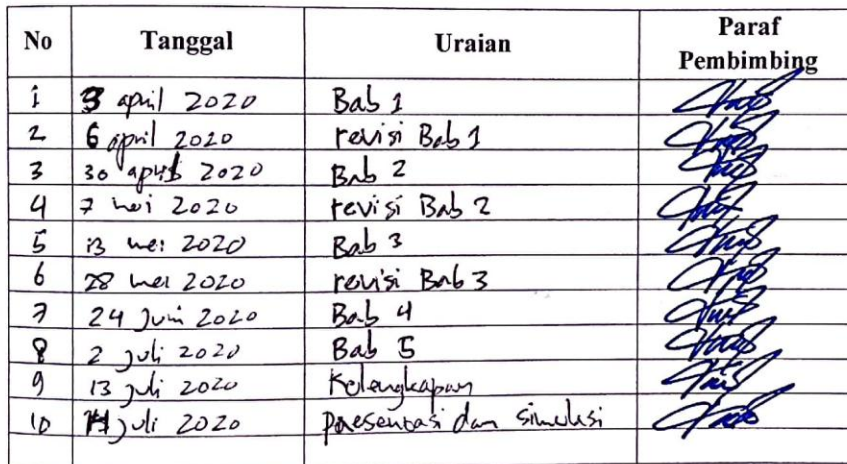 No Tanggal Uraian Paraf Pembimbing
1 3 april 2020 Bab 1
2 6 april 2020 revisi Bab 1
3 30 april 2020 Bab 2
4 7 mei 2020 revisi Bab 2
5 13 mei 2020 Bab 3
6 28 mei 2020 revisi Bab 3
7 24 Juni 2020 Bab 4
8 2 juli 2020 Bab 5
9 13 juli 2020 Kelengkapan
10 14 juli 2020 presentasi dan simulasi